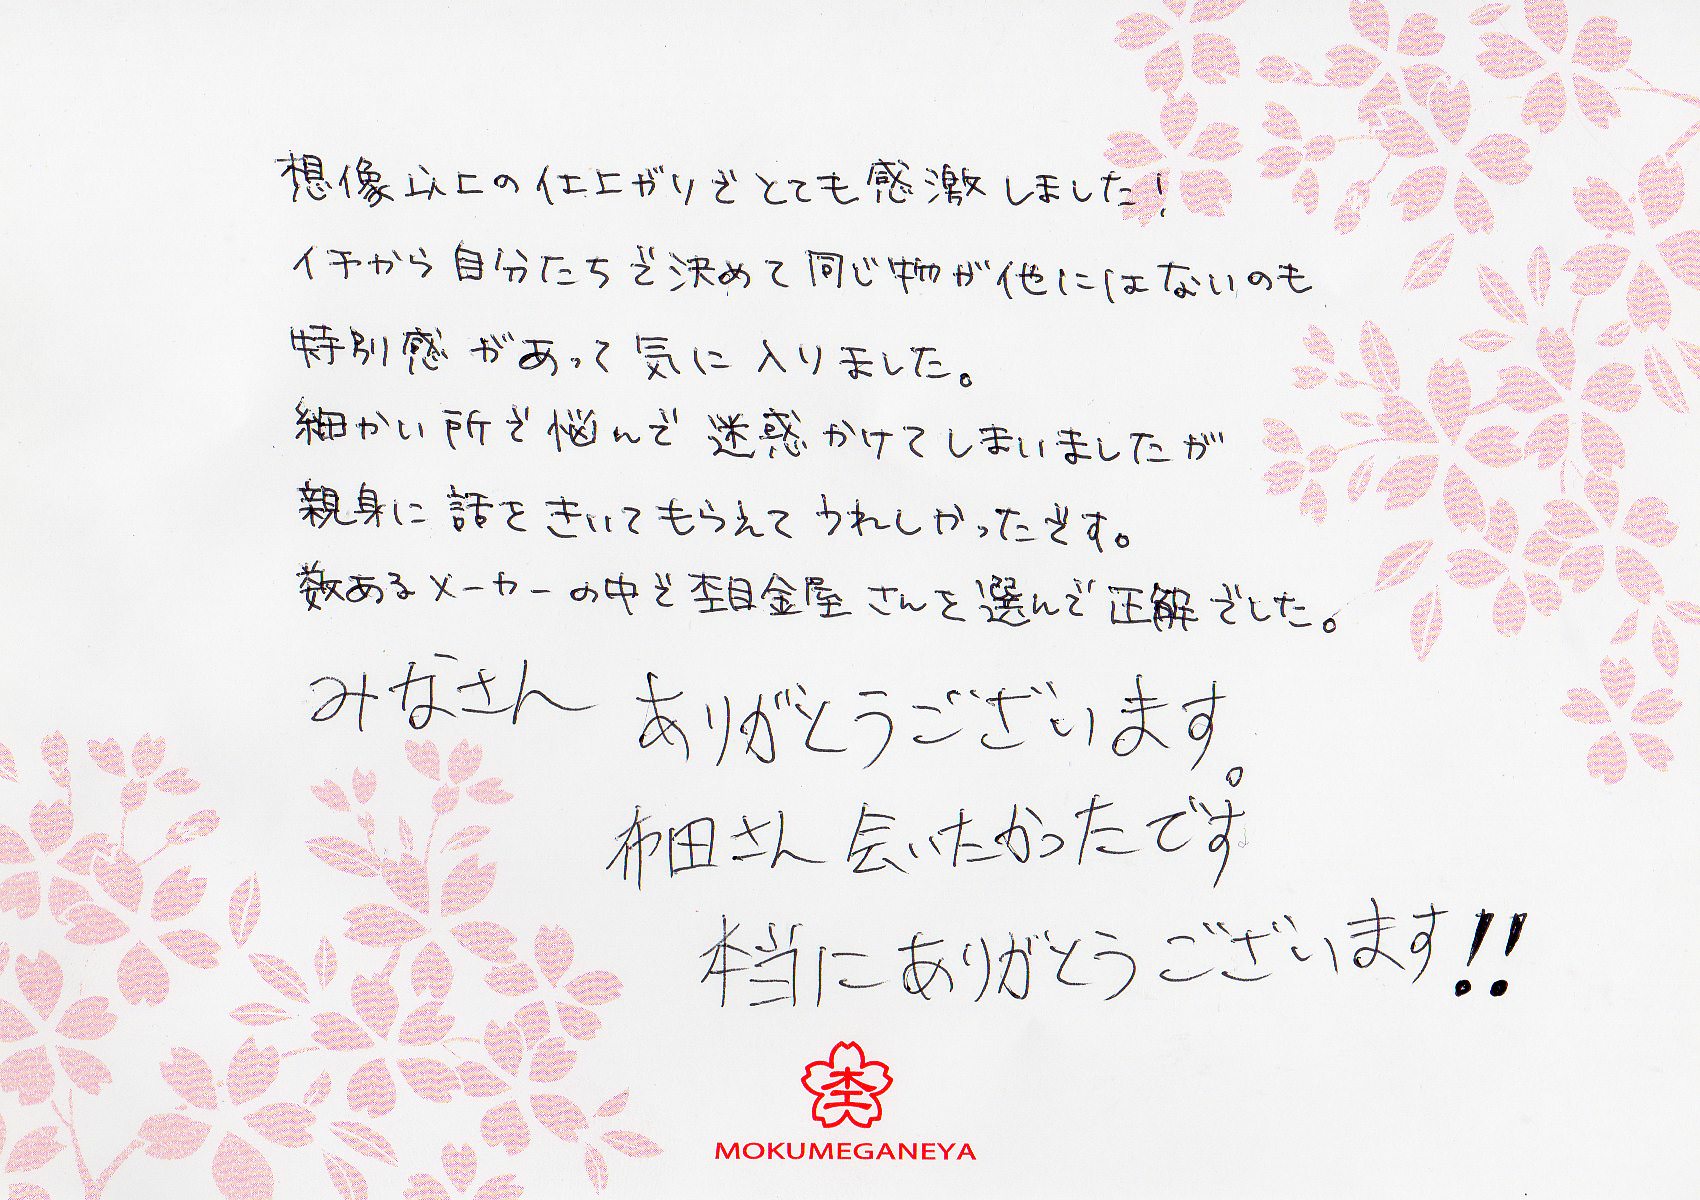 想像以上の仕上がりでとても感激しました!
イチから自分たちで決めて同じ物が他にはないのも
特別感があって気に入りました。
細かい所で悩んで迷惑かけてしまいましたが
親身に話をきいてもらえてうれしかったです。
数あるメーカーの中で杢目金屋さんを選んで正解でした。
みなさん ありがとうございます。
布田さん 会いたかったです
本当にありがとうございます!!
杢
MOKUMEGANEYA